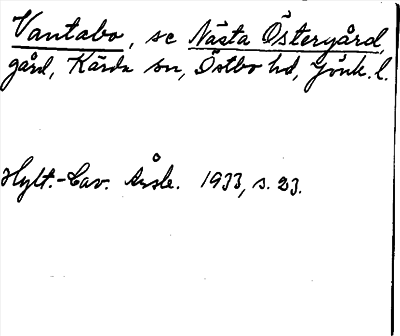 Vantabo, se Nästa Östergård,
gård, Kärda sn, Östbo hd, Jönk. l.
Hylt.-Cav. Årsb. 1933, s. 23.